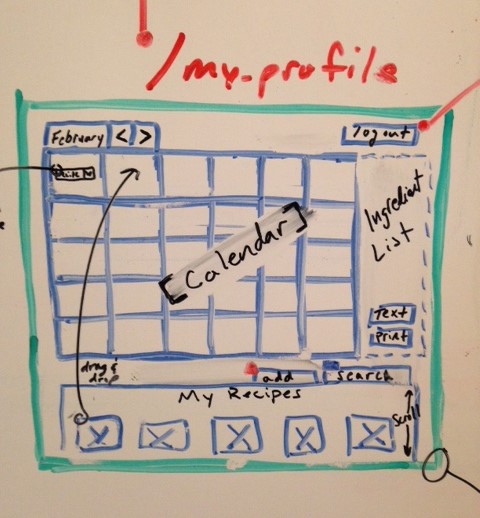 /my-profile
February < >
logout
[Calendar]
Ingredient
List
Text
Print
drag &
drop
add
search
My Recipes
Scroll